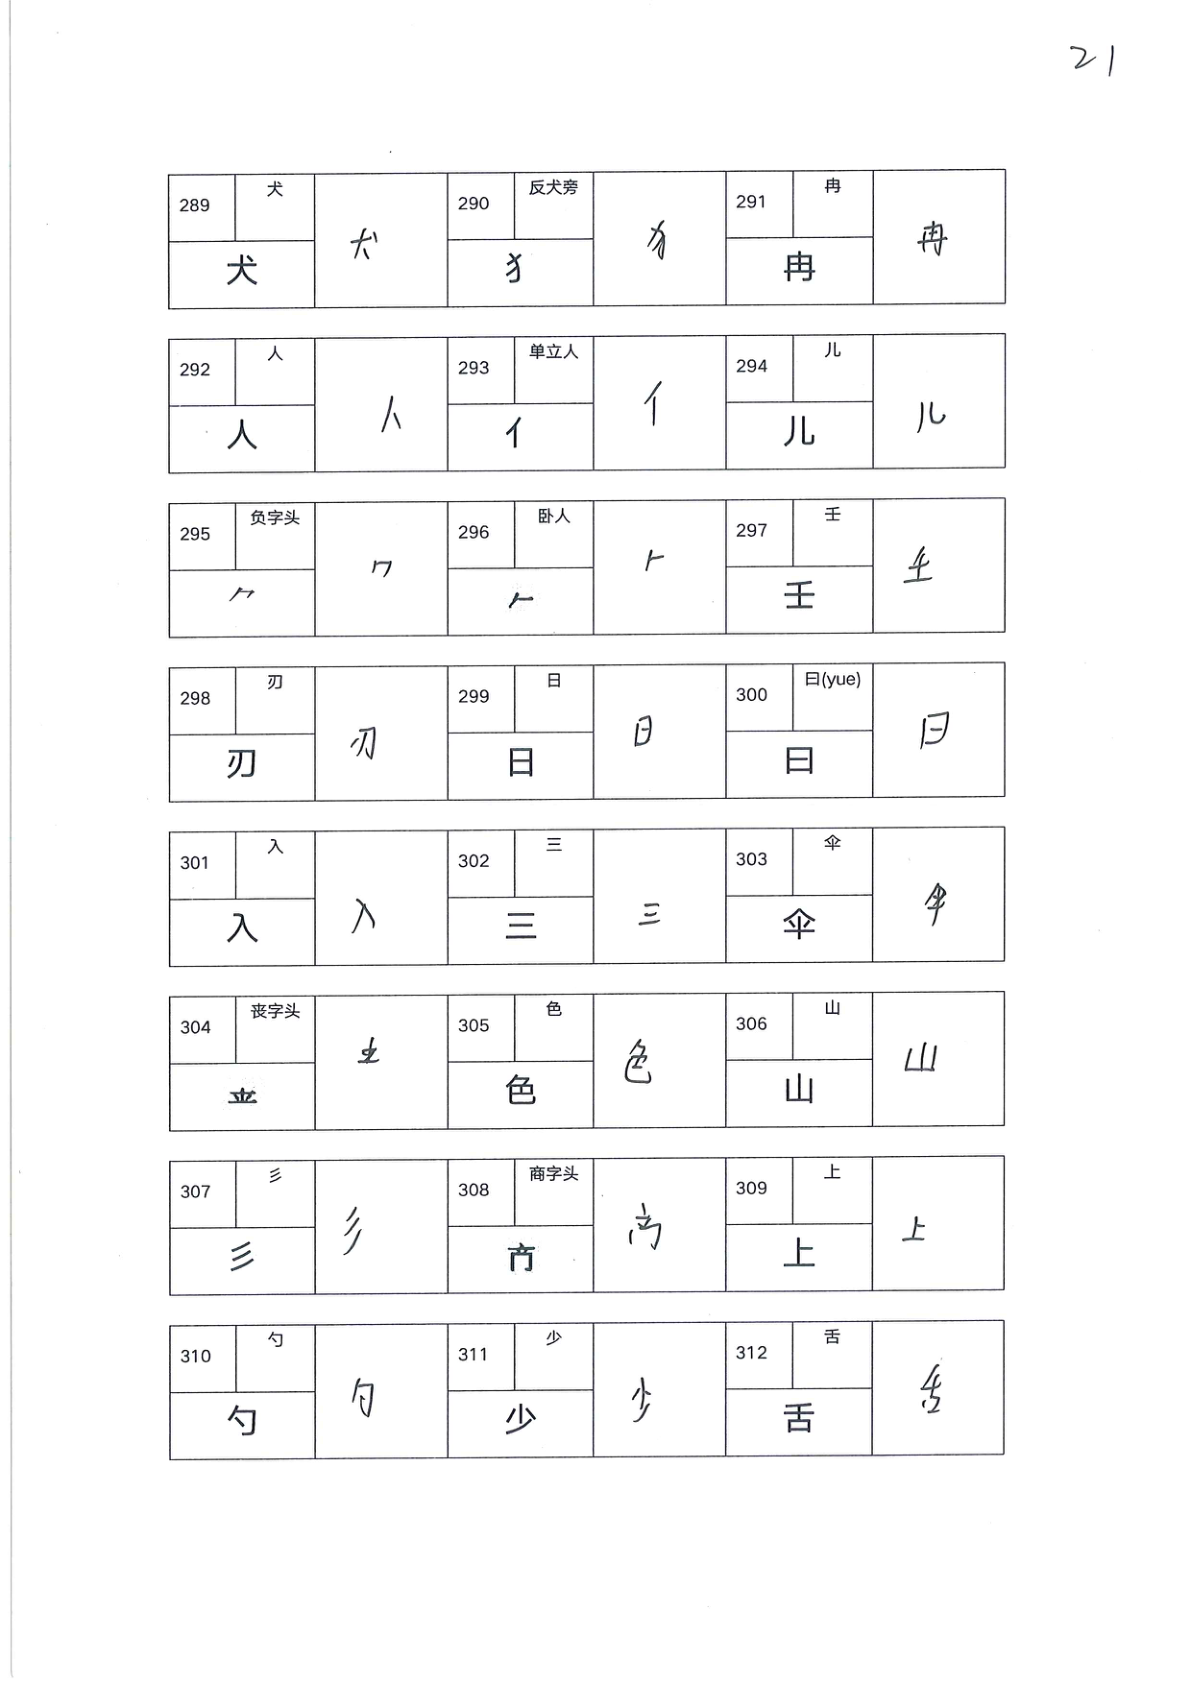 21
289 犬 犬 犬 290 反犬旁 犭 犭 291 冉 冉 冉
292 人 人 人 293 单立人 亻 亻 294 儿 儿 儿
295 负字头 ⺈ ⺈ 296 卧人 𠂉 𠂉 297 壬 壬 壬
298 刃 刃 刃 299 日 日 日 300 曰(yue) 曰 曰
301 入 入 入 302 三 三 三 303 伞 伞 伞
304 丧字头 305 色 色 色 306 山 山 山
307 彡 彡 彡 308 商字头 309 上 上 上
310 勺 勺 勺 311 少 少 少 312 舌 舌 舌